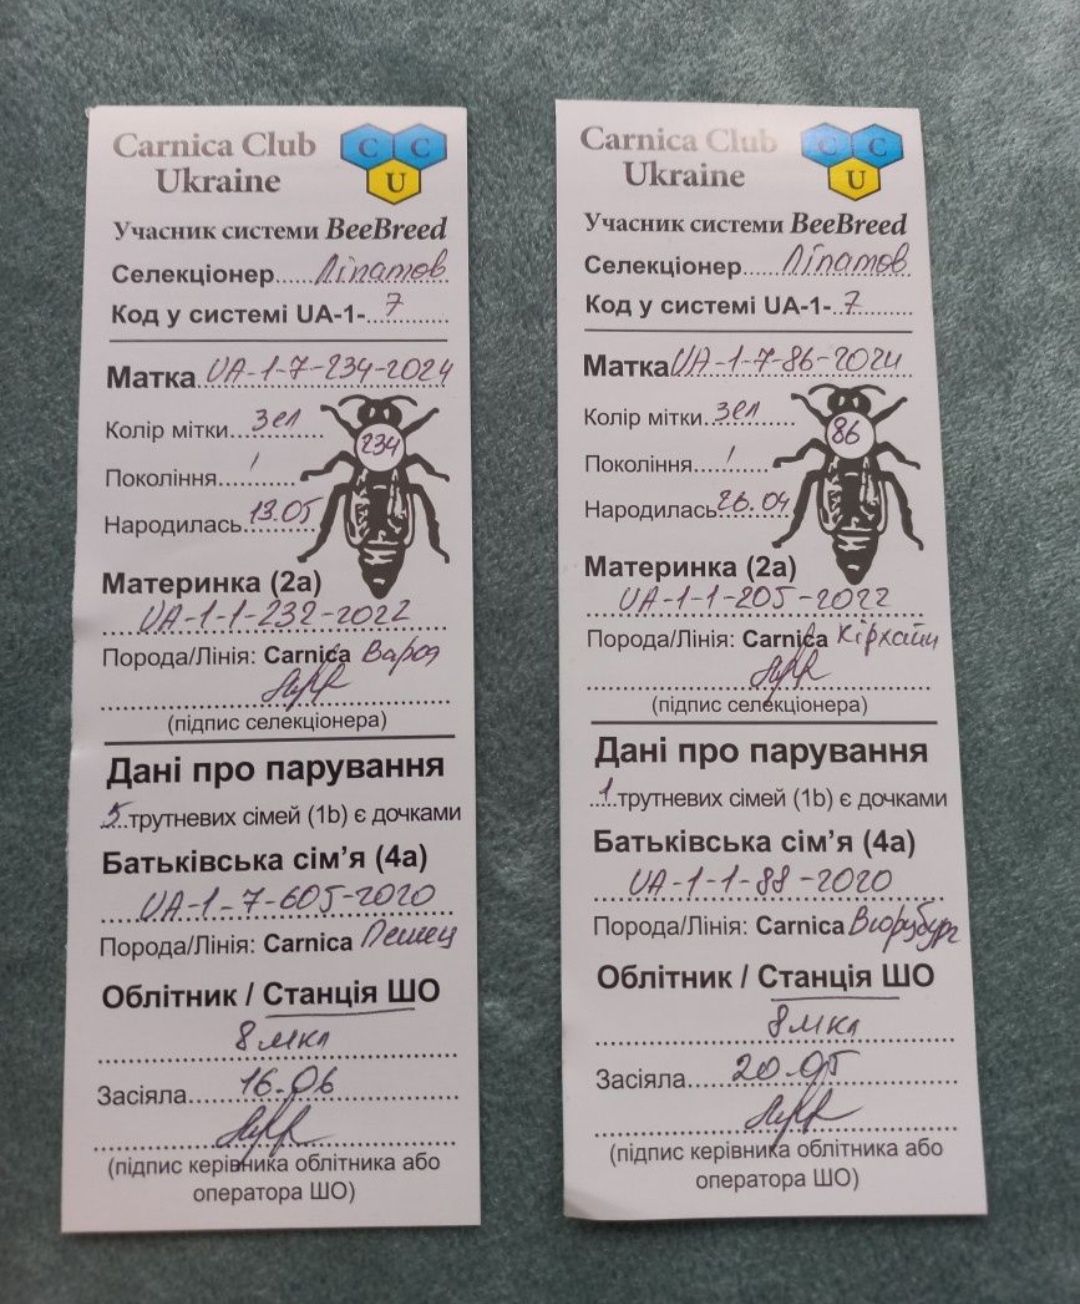 Carnica Club
Ukraine
C C
U
Учасник системи BeeBreed
Селекціонер......Ліпатов
Код у системі UA-1-...7.........
Матка UA-1-7-234-2024
Колір мітки...зел............
234
Покоління....1......
Народилась.13.05
Материнка (2а)
UA-1-1-232-2022
Порода/Лінія: Carnica Вароа
(підпис селекціонера)
Дані про парування
5...трутневих сімей (1b) є дочками
Батьківська сім’я (4а)
UA-1-7-605-2020
Порода/Лінія: Carnica Пешец
Облітник / Станція ШО
8 мкл
Засіяла.....16.06
(підпис керівника облітника або
оператора ШО)
Carnica Club
Ukraine
C C
U
Учасник системи BeeBreed
Селекціонер......Ліпатов
Код у системі UA-1-..7.........
Матка UA-1-7-86-2024
Колір мітки...зел............
86
Покоління....1......
Народилась.26.04
Материнка (2а)
UA-1-1-205-2022
Порода/Лінія: Carnica Кірхайн
(підпис селекціонера)
Дані про парування
...1..трутневих сімей (1b) є дочками
Батьківська сім’я (4а)
UA-1-1-88-2020
Порода/Лінія: Carnica Вюрцбург
Облітник / Станція ШО
8 мкл
Засіяла.....20.05
(підпис керівника облітника або
оператора ШО)